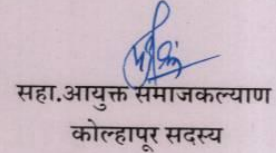 सहा.आयुक्त समाजकल्याण
कोल्हापूर सदस्य